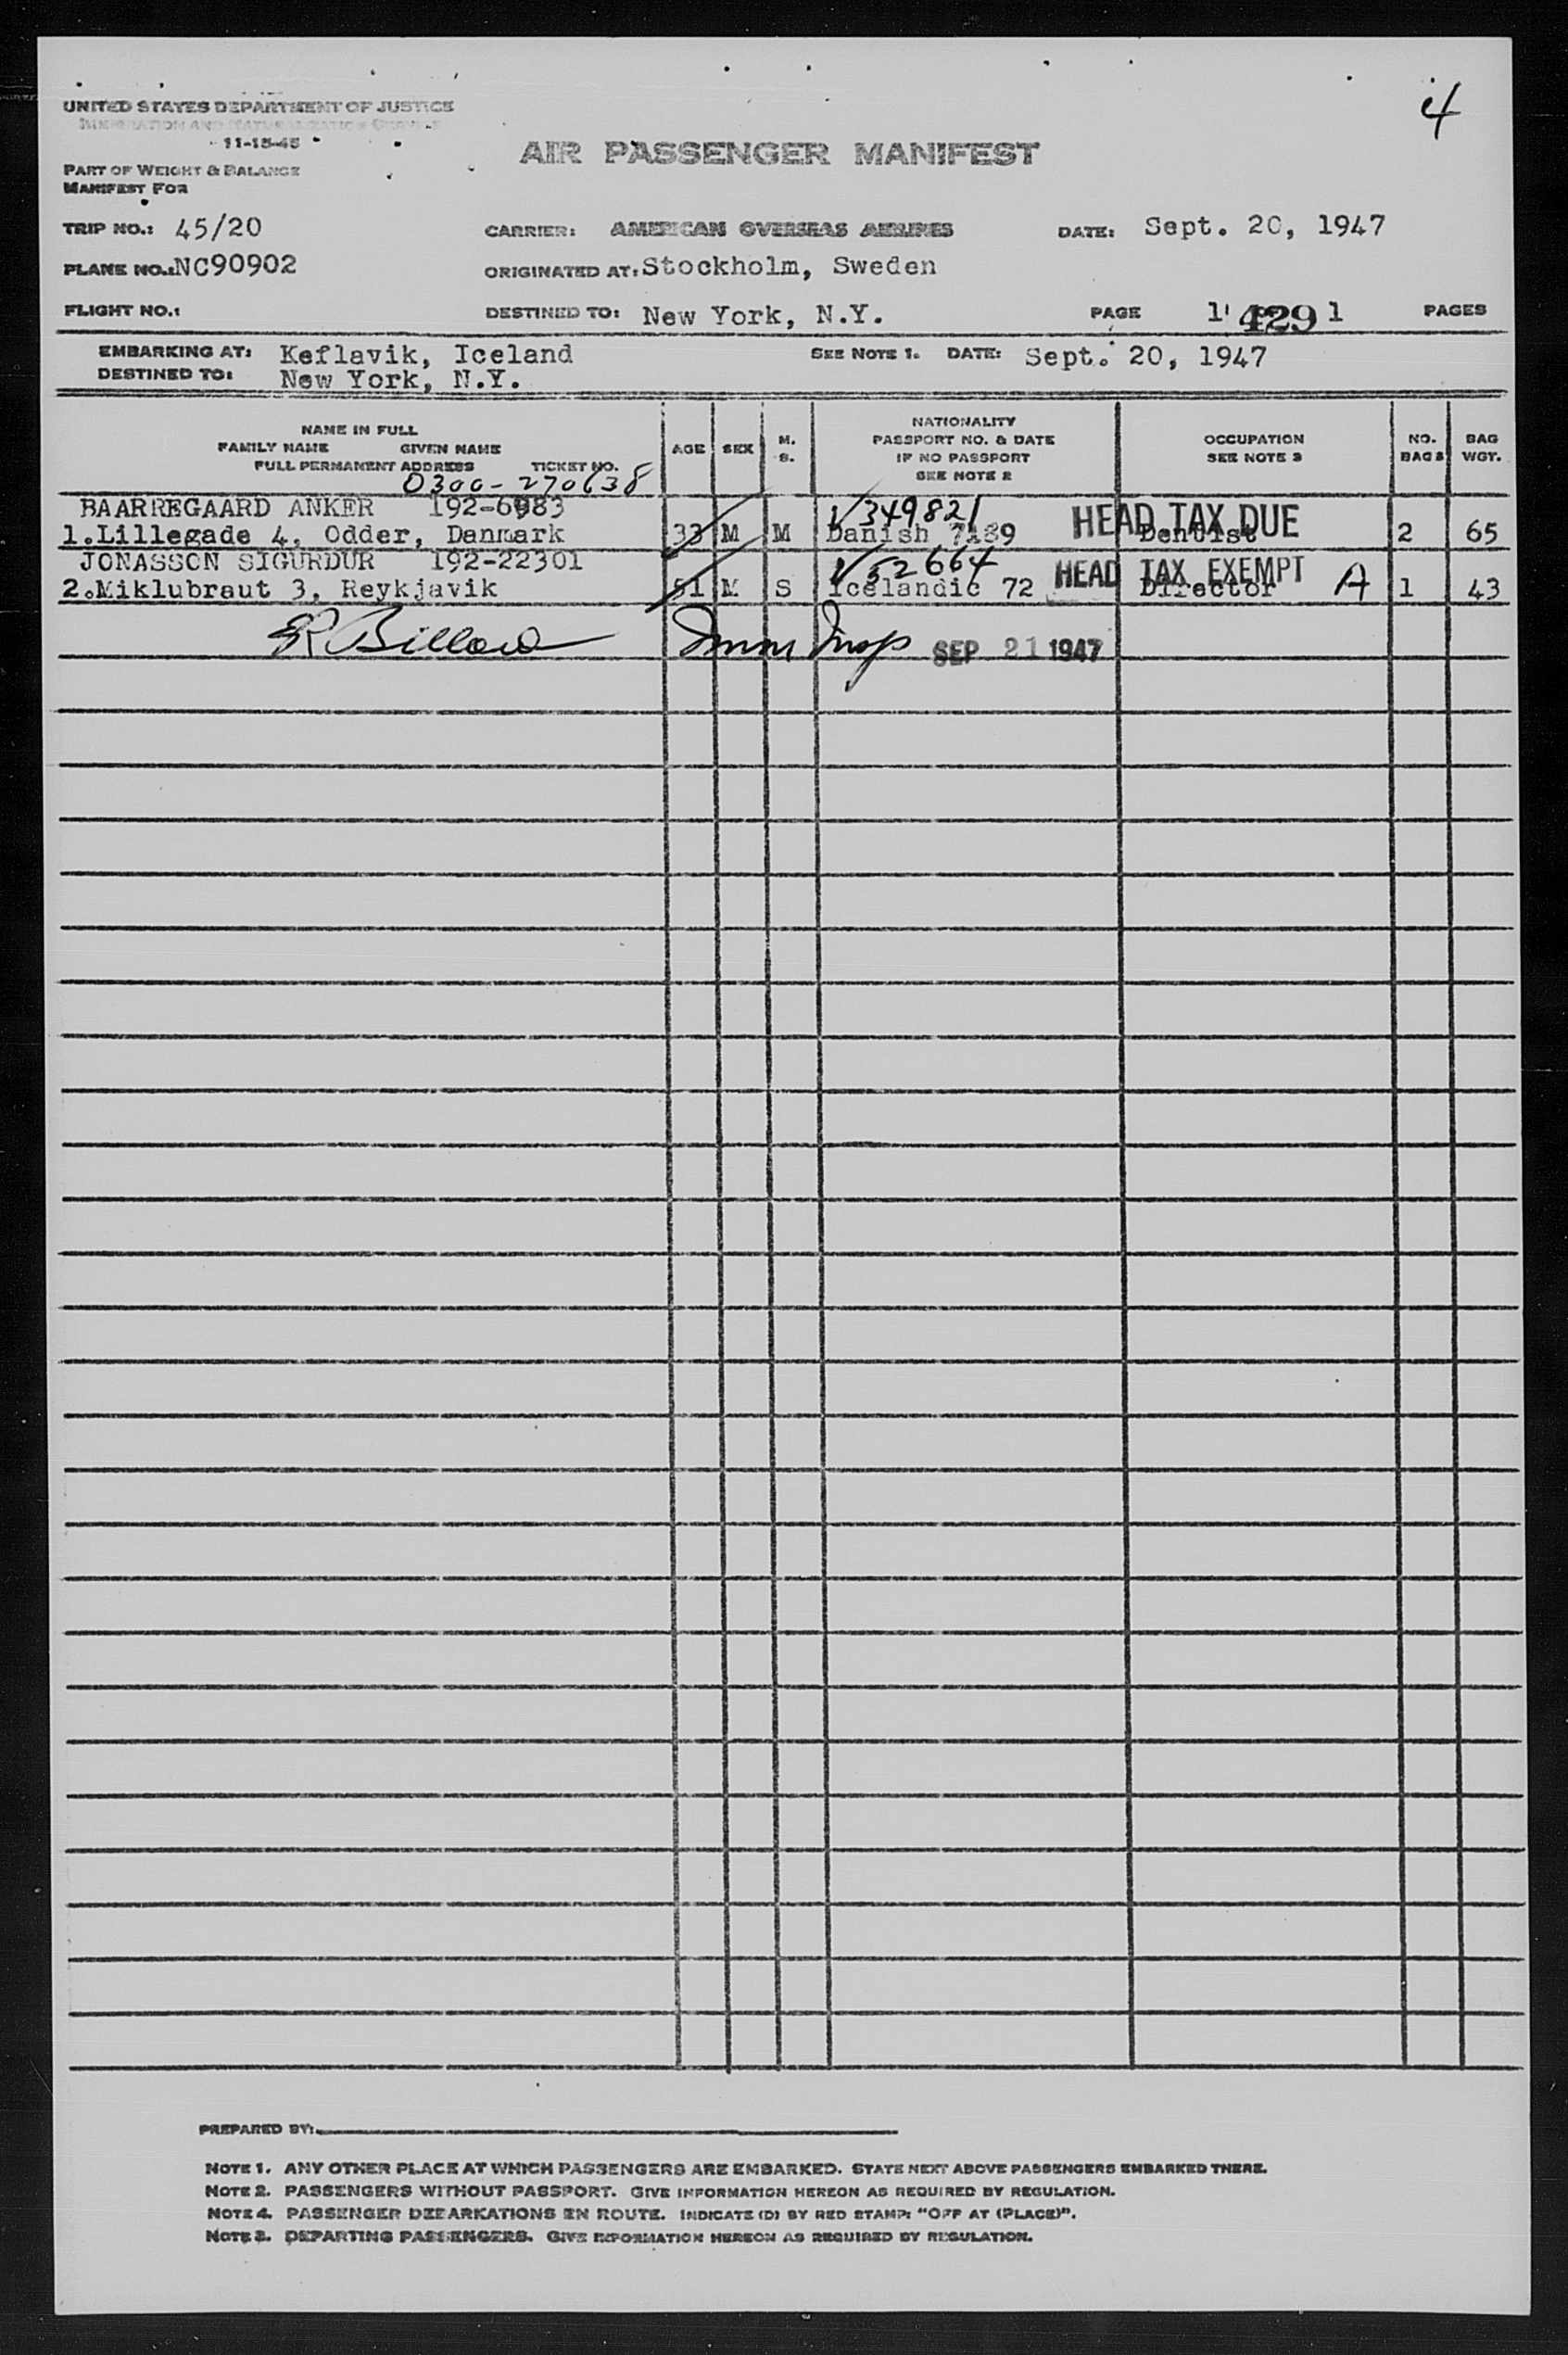 4
UNITED STATES DEPARTMENT OF JUSTICE
IMMIGRATION AND NATURALIZATION SERVICE
11-15-45
AIR PASSENGER MANIFEST
PART OF WEIGHT & BALANCE
MANIFEST FOR
TRIP NO.: 45/20 CARRIER: AMERICAN OVERSEAS AIRLINES DATE: Sept. 20, 1947
PLANE NO.: NC90902 ORIGINATED AT: Stockholm, Sweden
FLIGHT NO.: DESTINED TO: New York, N.Y. PAGE 1 429 1 PAGES
EMBARKING AT: Keflavik, Iceland SEE NOTE 1. DATE: Sept. 20, 1947
DESTINED TO: New York, N.Y.
NAME IN FULL
FAMILY NAME GIVEN NAME
FULL PERMANENT ADDRESS TICKET NO.
AGE SEX M. S.
NATIONALITY
PASSPORT NO. & DATE
IF NO PASSPORT
SEE NOTE 2
OCCUPATION
SEE NOTE 3
NO. BAGS BAG WGT.
0300-270638
BAARREGAARD ANKER 192-6983 V349821 HEAD TAX DUE
1.Lillegade 4, Odder, Danmark 33 M M Danish Dentist 2 65
JONASSON SIGURDUR 192-22301 V52664 HEAD TAX EXEMPT A
2.Miklubraut 3, Reykjavik M S Icelandic 72 Director 1 43
Immn Insp SEP 21 1947
PREPARED BY:
NOTE 1. ANY OTHER PLACE AT WHICH PASSENGERS ARE EMBARKED. STATE NEXT ABOVE PASSENGERS EMBARKED THERE.
NOTE 2. PASSENGERS WITHOUT PASSPORT. GIVE INFORMATION HEREON AS REQUIRED BY REGULATION.
NOTE 4. PASSENGER DEBARKATIONS EN ROUTE. INDICATE (D) BY RED STAMP: "OFF AT (PLACE)".
NOTE 3. DEPARTING PASSENGERS. GIVE INFORMATION HEREON AS REQUIRED BY REGULATION.